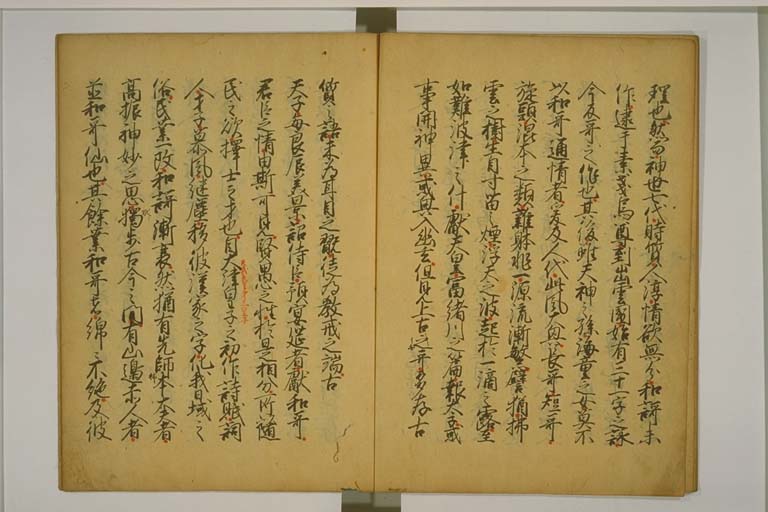 理也然而神世七代時質人淳情欲無分和謌未
作逮于素戔烏尊到出雲國始有三十一字之詠
今反哥之作也其後雖天神之孫海童之女莫不
以和哥通情者爰及人代此風大興長哥短哥
旋頭混本之類雜躰非一源流漸繁譬猶拂
雲之樹生自寸苗之煙浮天之波起於一滴之露至
如難波津之什獻天皇富緒川之篇報太子或
事關神異或興入幽玄但見上古之哥多存古
質之語未為耳目之翫徒為教戒之端古
天子每良辰美景詔侍臣預宴莚者獻和哥
君臣之情由斯可見賢愚之性於是相分所以隨
民之欲擇士之才也自大津皇子之初作詩賦詞
人才子慕風繼塵移彼漢家之字化我日域之
俗民業一改和謌漸衰然猶有先師柿本大夫者
高振神妙之思獨步古今之間有山邊赤人者
並和哥仙也其餘業和哥者綿々不絕及彼